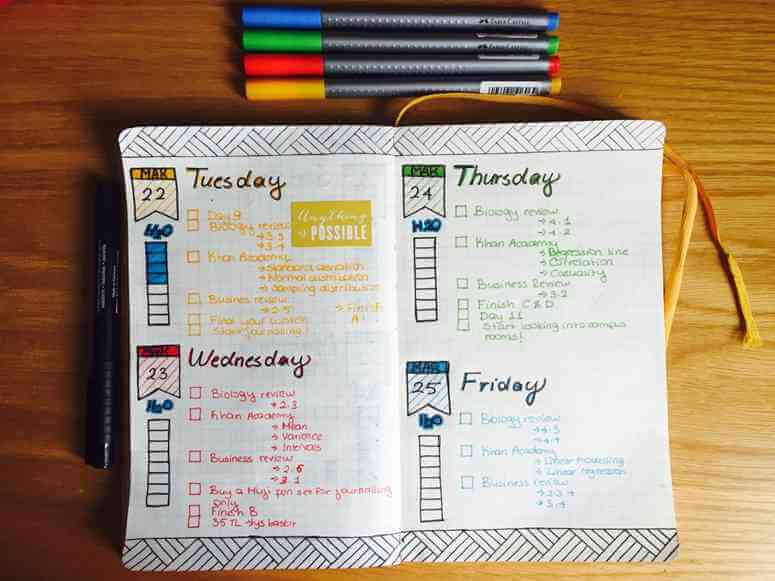 FABER-CASTELL
FABER-CASTELL
MAR
22
Tuesday
H2O
Day 9
Biology review
→ 3.3
→ 3.4
Anything
is POSSIBLE
Khan Academy
→ Standard deviation
→ Normal distribution
→ Sampling distribution
Busines review
→ 2.5
→ Finish
Find your watch
Start journalling!
MAR
23
Wednesday
H2O
Biology review
→ 2.3
Khan Academy
→ Mean
→ Variance
→ Intervals
Business review
→ 2.6
→ 3.1
Buy a Muji pen set for journalling
only
Finish B
35 TL
MAR
24
Thursday
H2O
Biology review
→ 4.1
→ 4.2
Khan Academy
→ Regression line
→ Correlation
→ Casuality
Business Review
→ 3.2
Finish C & D
Day 11
Start looking into campus
rooms!
MAR
25
Friday
H2O
Biology review
→ 4.3
→ 4.4
Khan Academy
→ Linear
→ Linear regression
Business review
→ 3.4